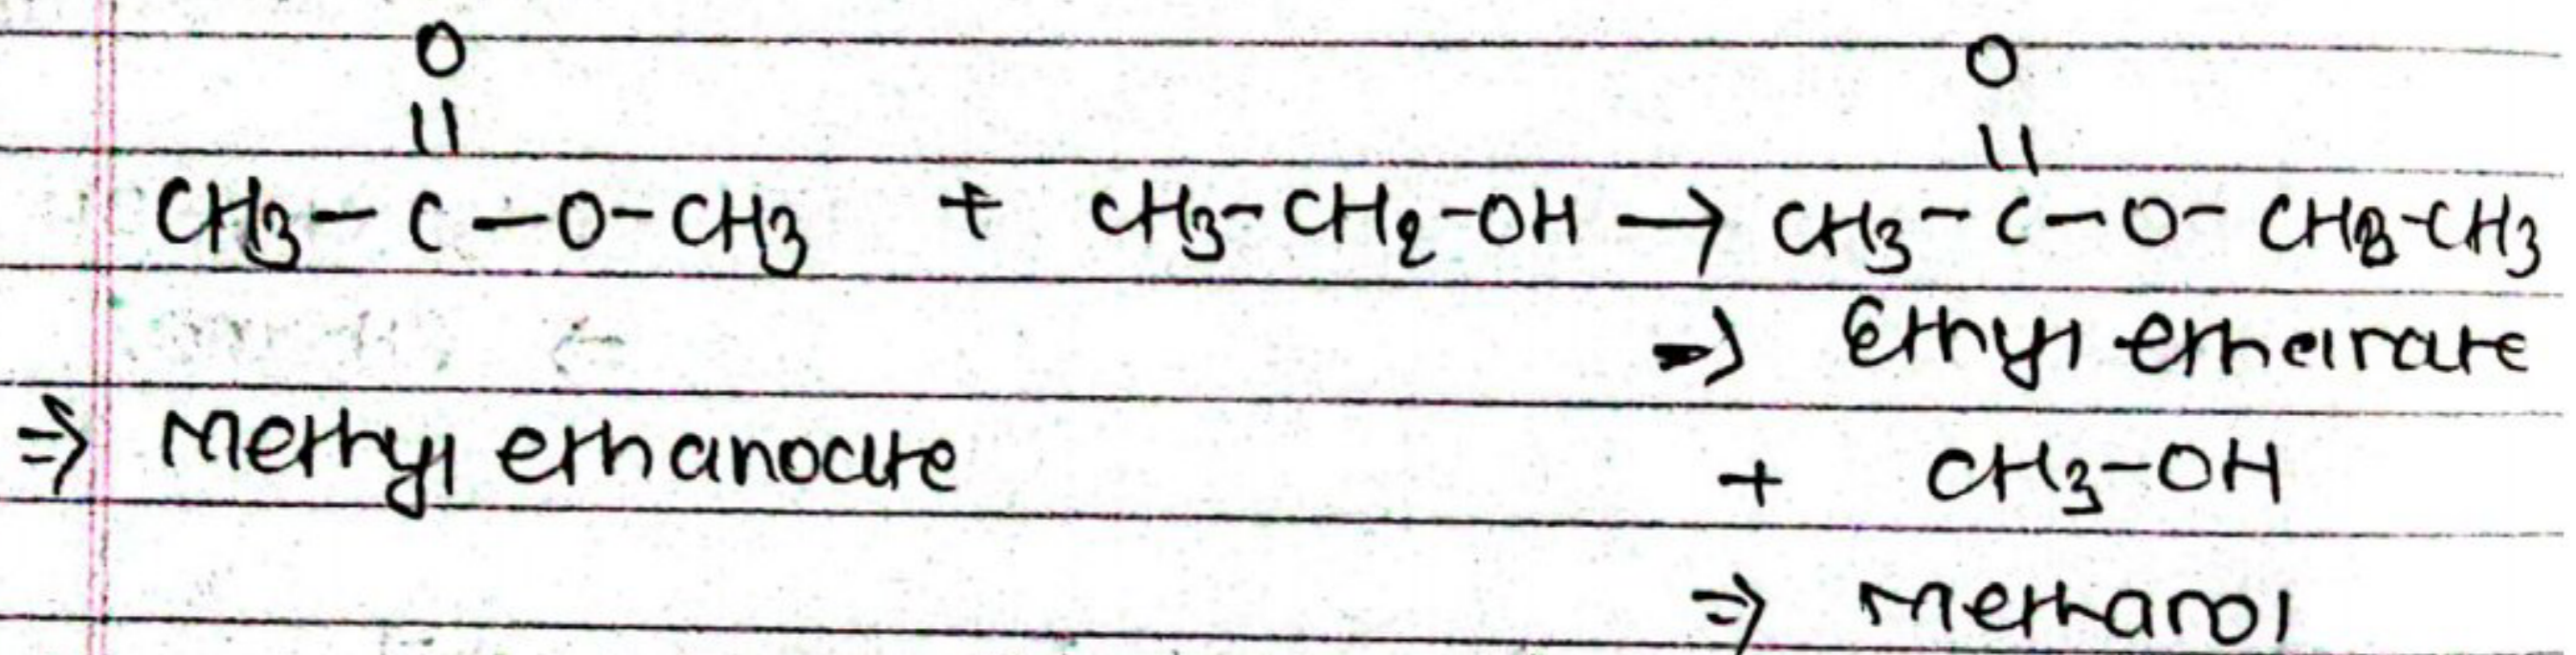 O O
|| ||
CH3 – C – O – CH3 + CH3 – CH2 – OH → CH3 – C – O – CH2 – CH3
⇒ Ethyl ethanoate
⇒ Methyl ethanoate + CH3 – OH
⇒ Methanol